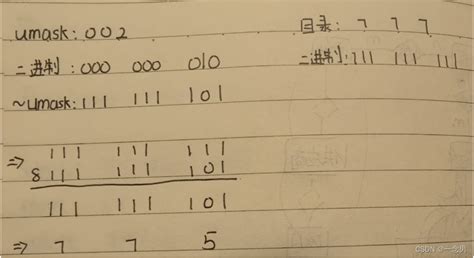 umask: 002
目录: 7 7 7
二进制: 000 000 010
二进制: 111 111 111
~umask: 111 111 101
=> 111 111 111
& 111 111 101
111 111 101
=> 7 7 5
CSDN @一念男